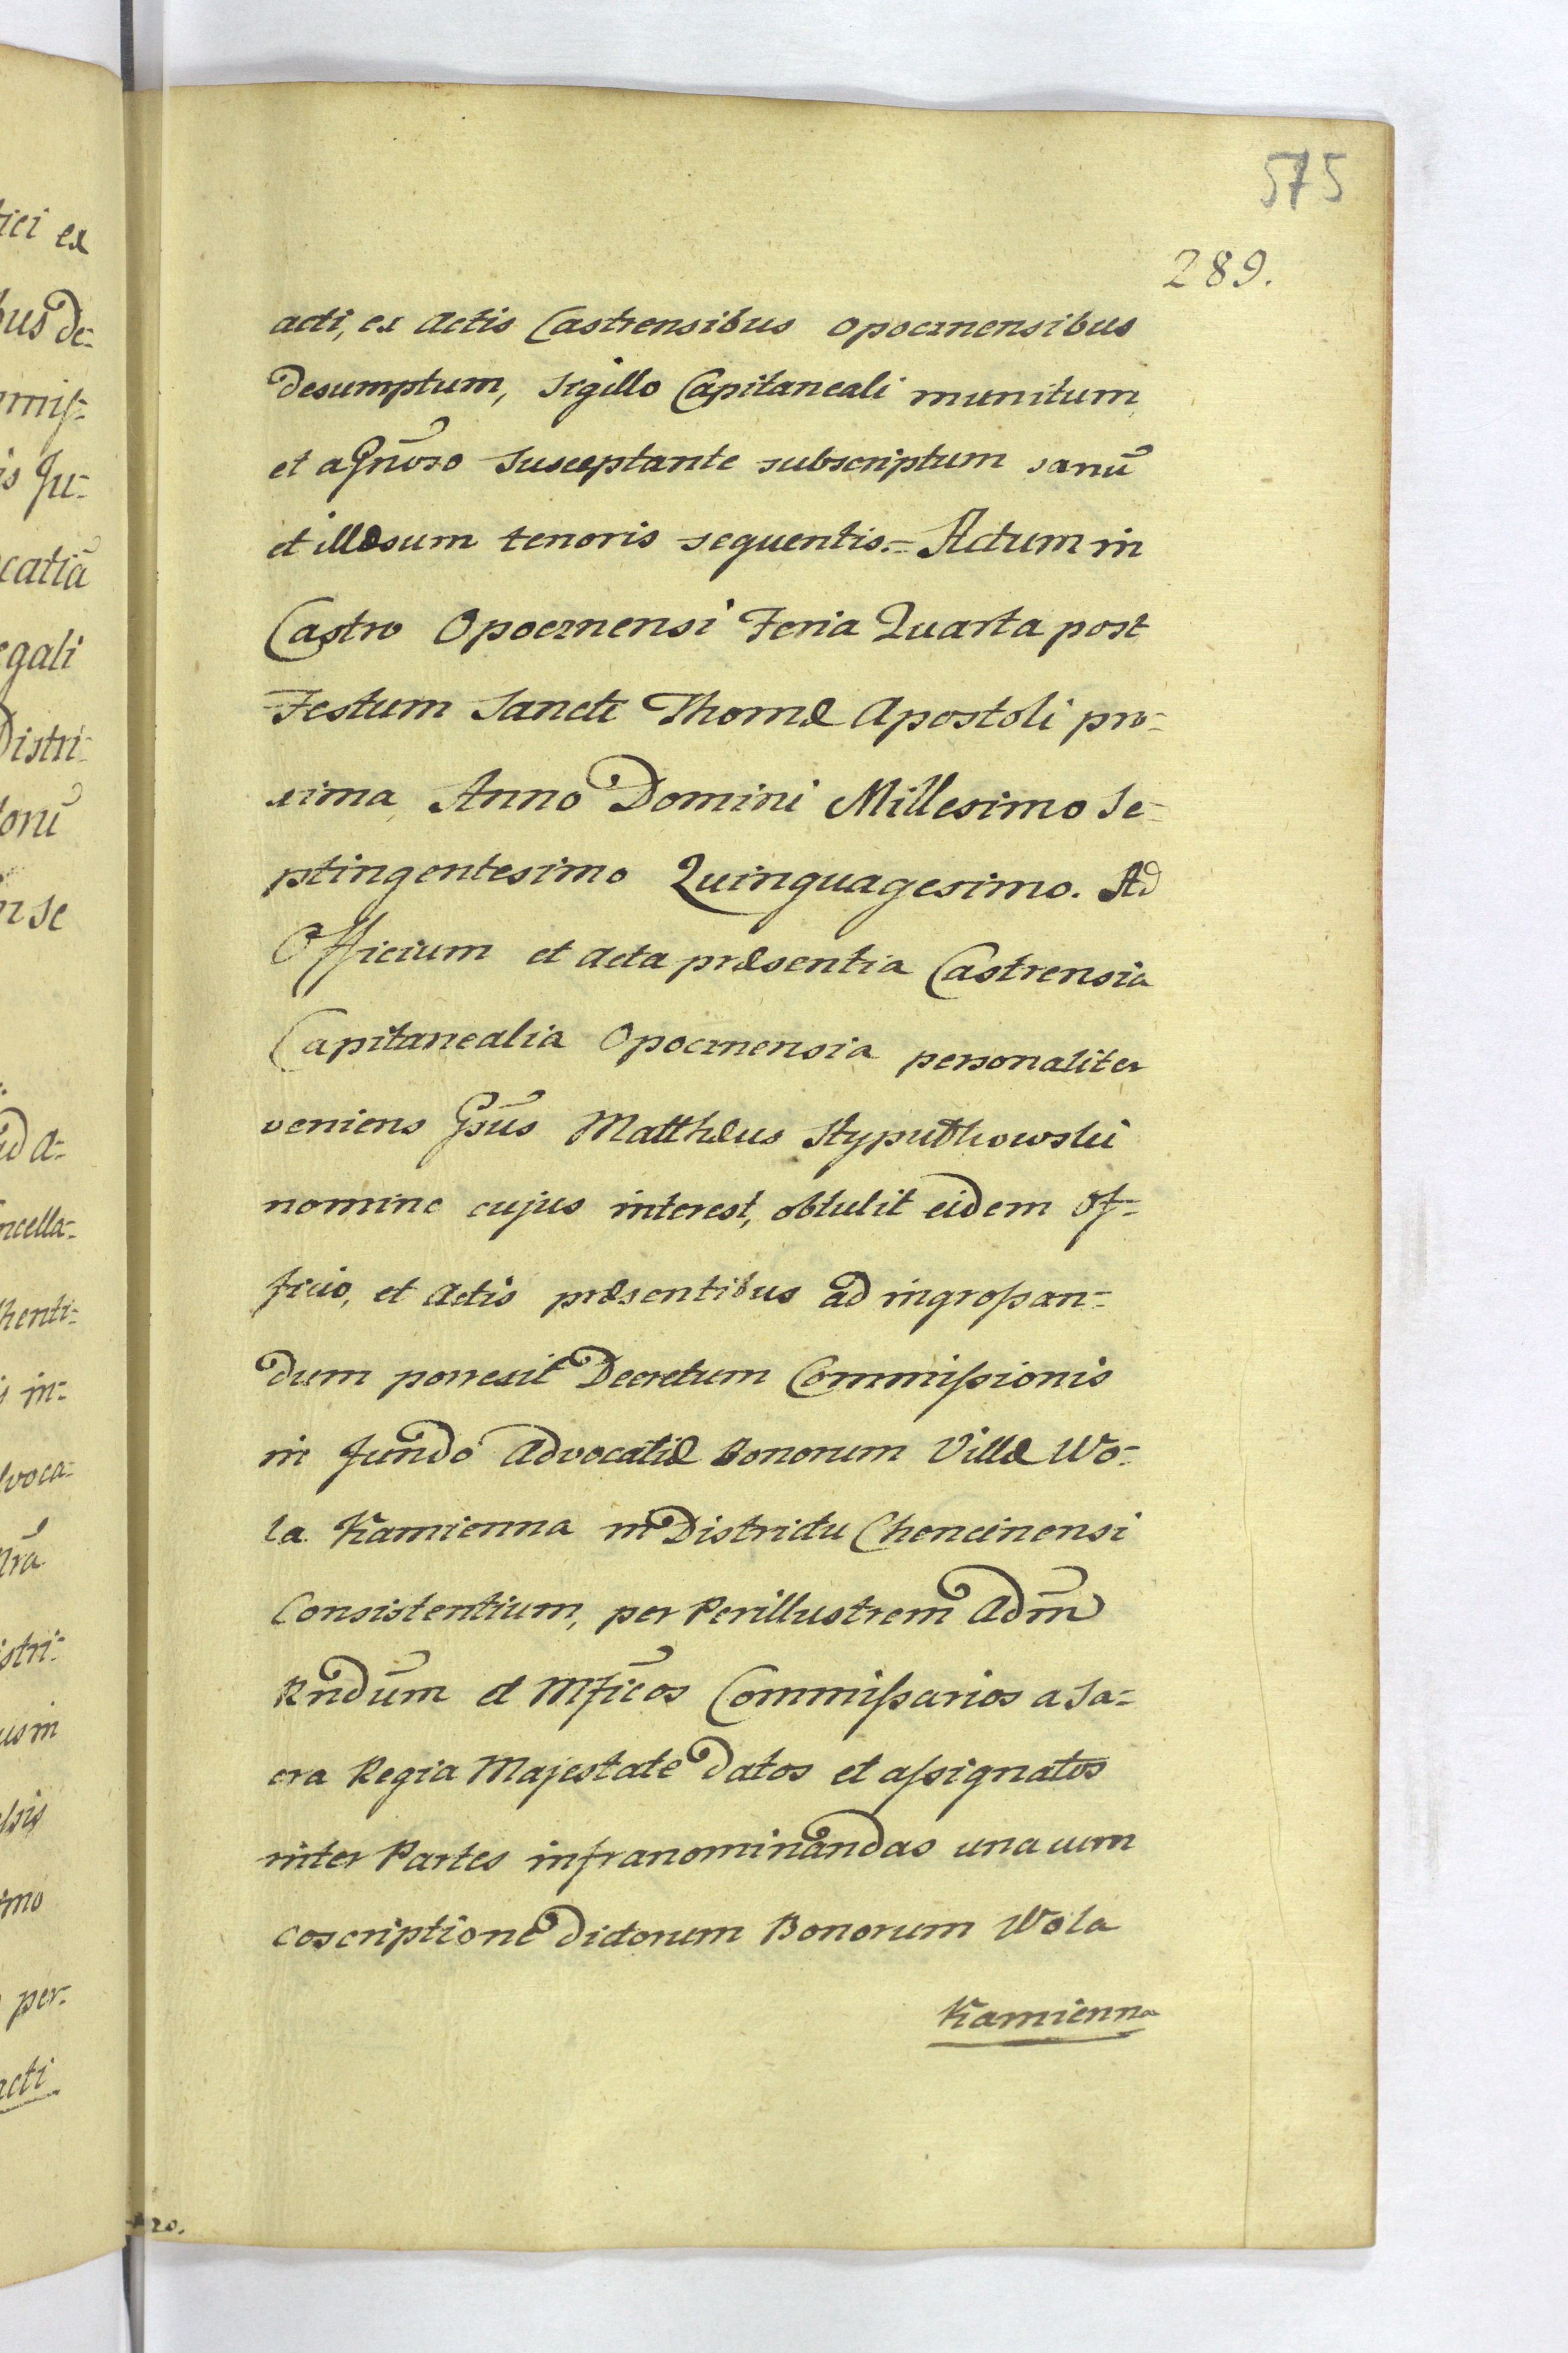 575
289.
acti, ex Actis Castrensibus Opocznensibus
desumptum, Sigillo Capitaneali munitum,
et a Gnōso Susceptante subscriptum sanū
et illæsum tenoris sequentis.= Actum in
Castro Opocznensi Feria Quarta post
Festum Sancti Thomæ Apostoli pro=
xima, Anno Domini Millesimo Se=
ptingentesimo Quinquagesimo. Ad
Officium et Acta præsentia Castrensia
Capitanealia Opocznensia personaliter
veniens Gsūs Matthæus
nomine cujus interest, obtulit eidem Of=
ficio, et Actis præsentibus ad ingroßan=
dum porrexit Decretum Commißionis
in fundo Advocatiæ Bonorum Villæ Wo=
la Kamienna in Districtu Chencinensi
Consistentium, per Perillustrem Adm̄
Rndūm et Mfīcos Commißarios a Sa=
cra Regia Majestate datos et aßignatos
inter Partes infranominandas una cum
coscriptione dictorum Bonorum Wola
Kamienna
ici ex
bus de=
mis=
is Ju=
catiā
egali
Distri=
orū
n se
ud A=
ncella=
henti=
s in=
dvoca=
stri=
us in
imo
per=
acti
20.